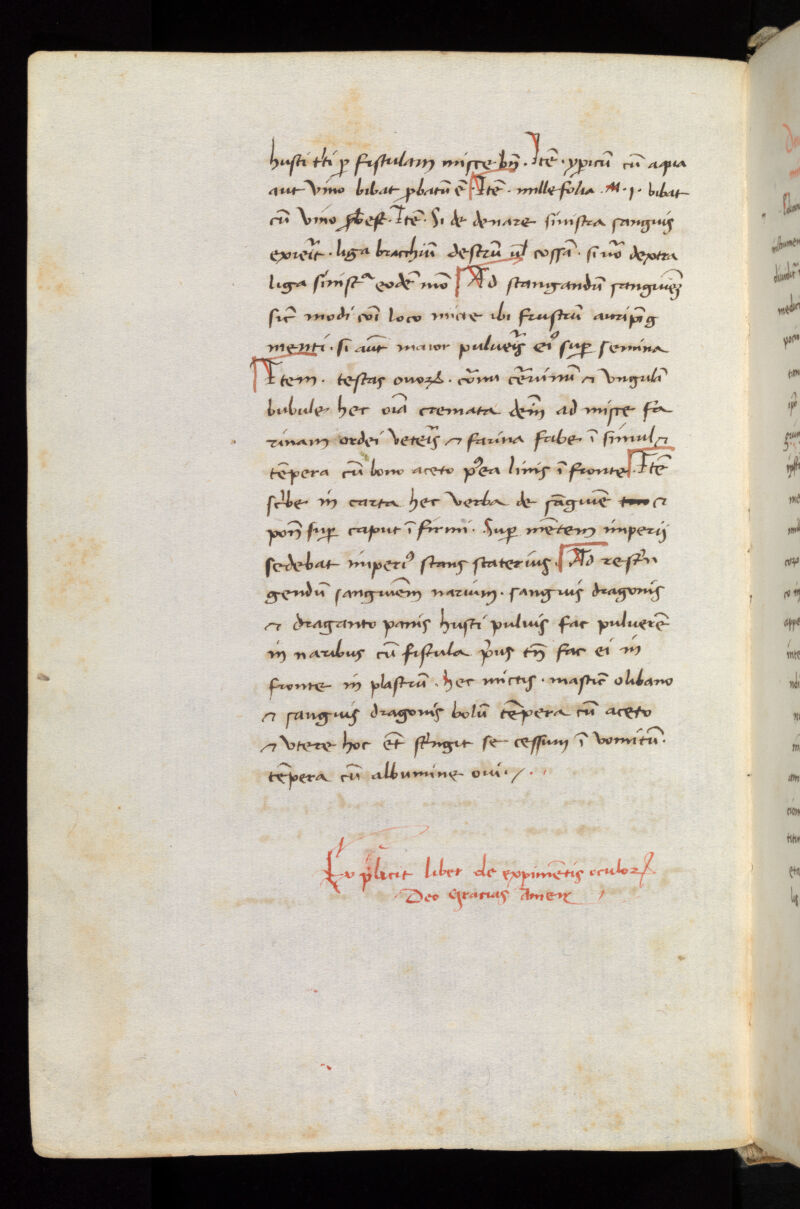 husti tʼti ꝑ fistulam misce bn̄. Itē. ypicū cū aqua
aut Vino bibat ꝓbatū ē Itē. mille folia .M.I. bibat
cū vino Itē. Si de denare sinistra sanguis
exieīt. liga brachiū destrū ul̄ cossā. si uº dextra
liga sinistª eodē mō Ad stangandū sanguiē
sic̄ modi loco micte ibi frustrū auripīg
menti. si aūt maior pulueis ei sup̄ semina
Item. testas ouoꝝ. cornu ceruinū ⁊ Vngulā
bubule hec oīa cremata dem̄ ad misce fa
rinam ordei veteis ⁊ farina fabe ī simul ⁊
tēpera cū bono aceto pᵒea linis ī fronte Itē
scͥbe in carta hec Verba de sāguīe ⁊
pon̄ sup̄ caput ī firmi. Sup̄ mētem imperij
sedebat imperi⁹ stans staterius. Ad restn̄
gendū sanguinem narium. sanguis dragonis
⁊ draganto panis husti puluis fac puluerē
in naribus cū fistula pͥus tn̄ fac ei in
fronte in plastrū. hec mictis. masticē olibano
⁊ sanguis dragonis bolū tēpera cū aceto
⁊ Vtere hoc et̄ stͥngit se cessum ī vomitū.
tēpera cū albumine oui.
Explicit liber de expimētis oculoꝝ
Deo Gracias Amen